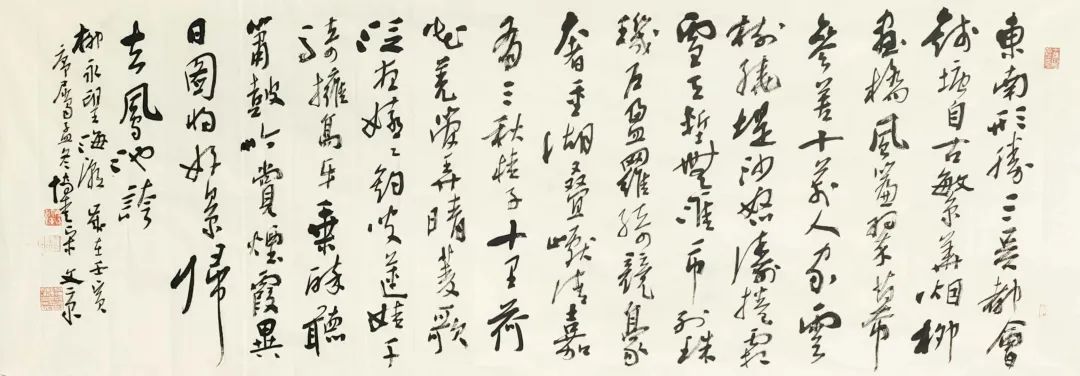 東南形勝三吴都會
錢塘自古繁華烟柳
畫橋風簾翠幕
參差十萬人家雲
樹繞堤沙怒濤捲霜
雪天塹無涯市列珠
璣户盈羅綺競豪
奢重湖疊巘清嘉
有三秋桂子十里荷
花羌管弄晴菱歌
泛夜嬉〻釣叟蓮娃千
騎擁高牙乘醉聽
簫鼓吟賞煙霞異
日圖將好景歸
去鳳池誇
柳永望海潮 歲在壬寅
序屬孟冬 宋文京